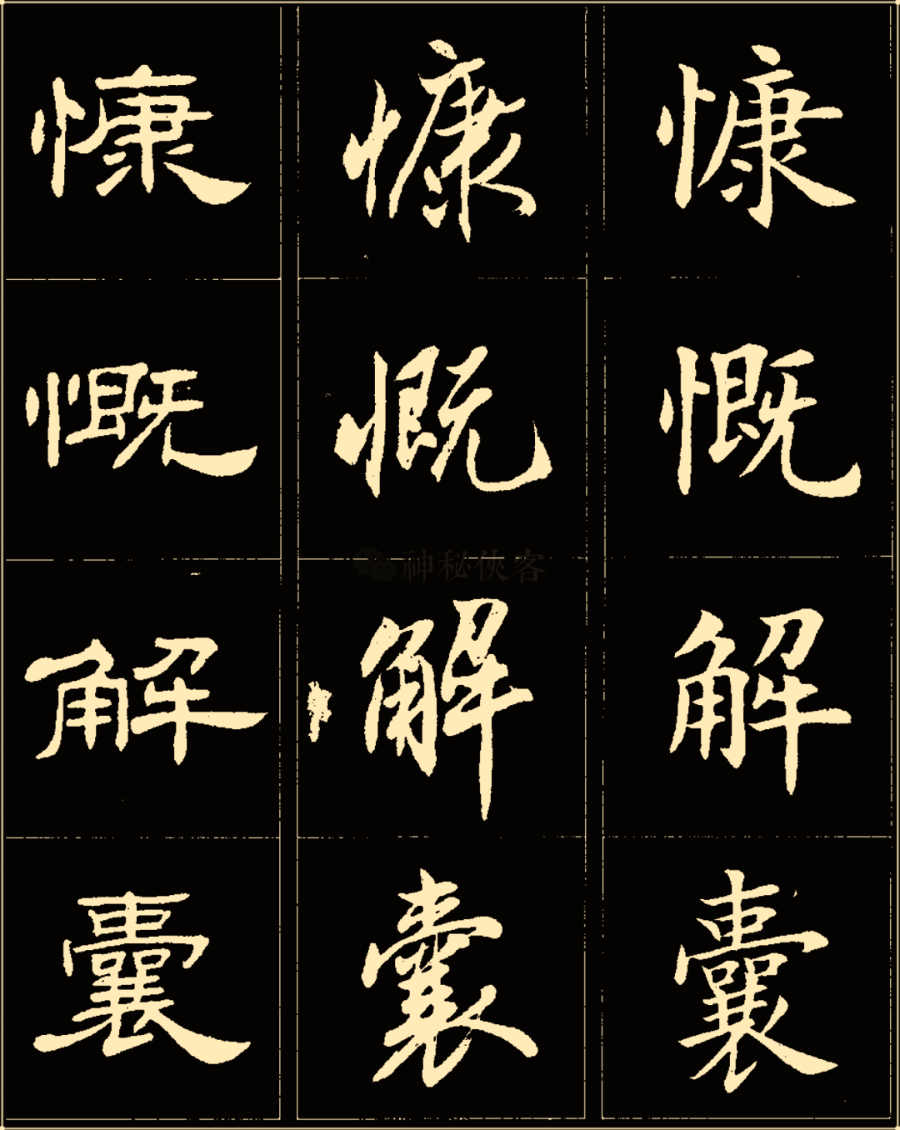 慷慷慷
慨慨慨
神秘侠客
解解解
囊囊囊